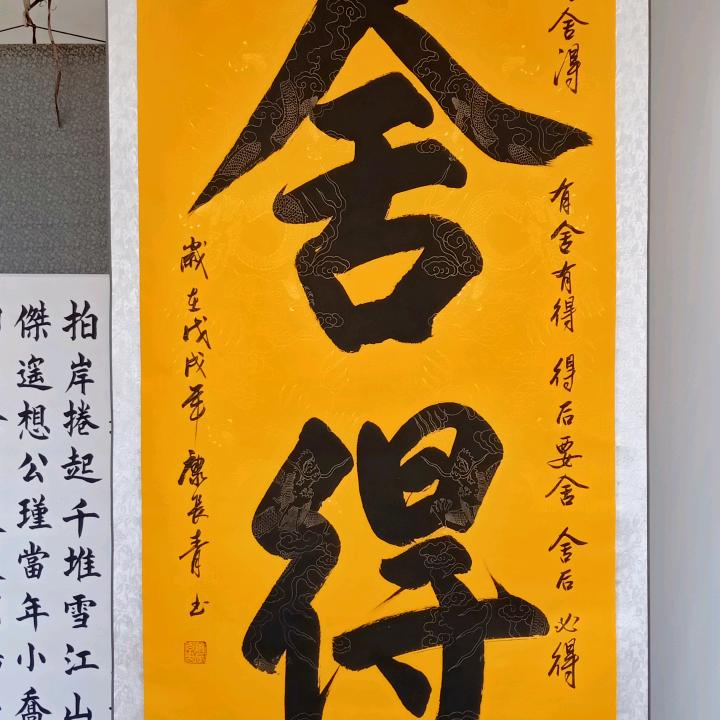 舍得 有舍有得 得后要舍 舍后必得
舍得
歲在戊戌年康長青书
拍岸捲起千堆雪江山
傑遙想公瑾當年小喬